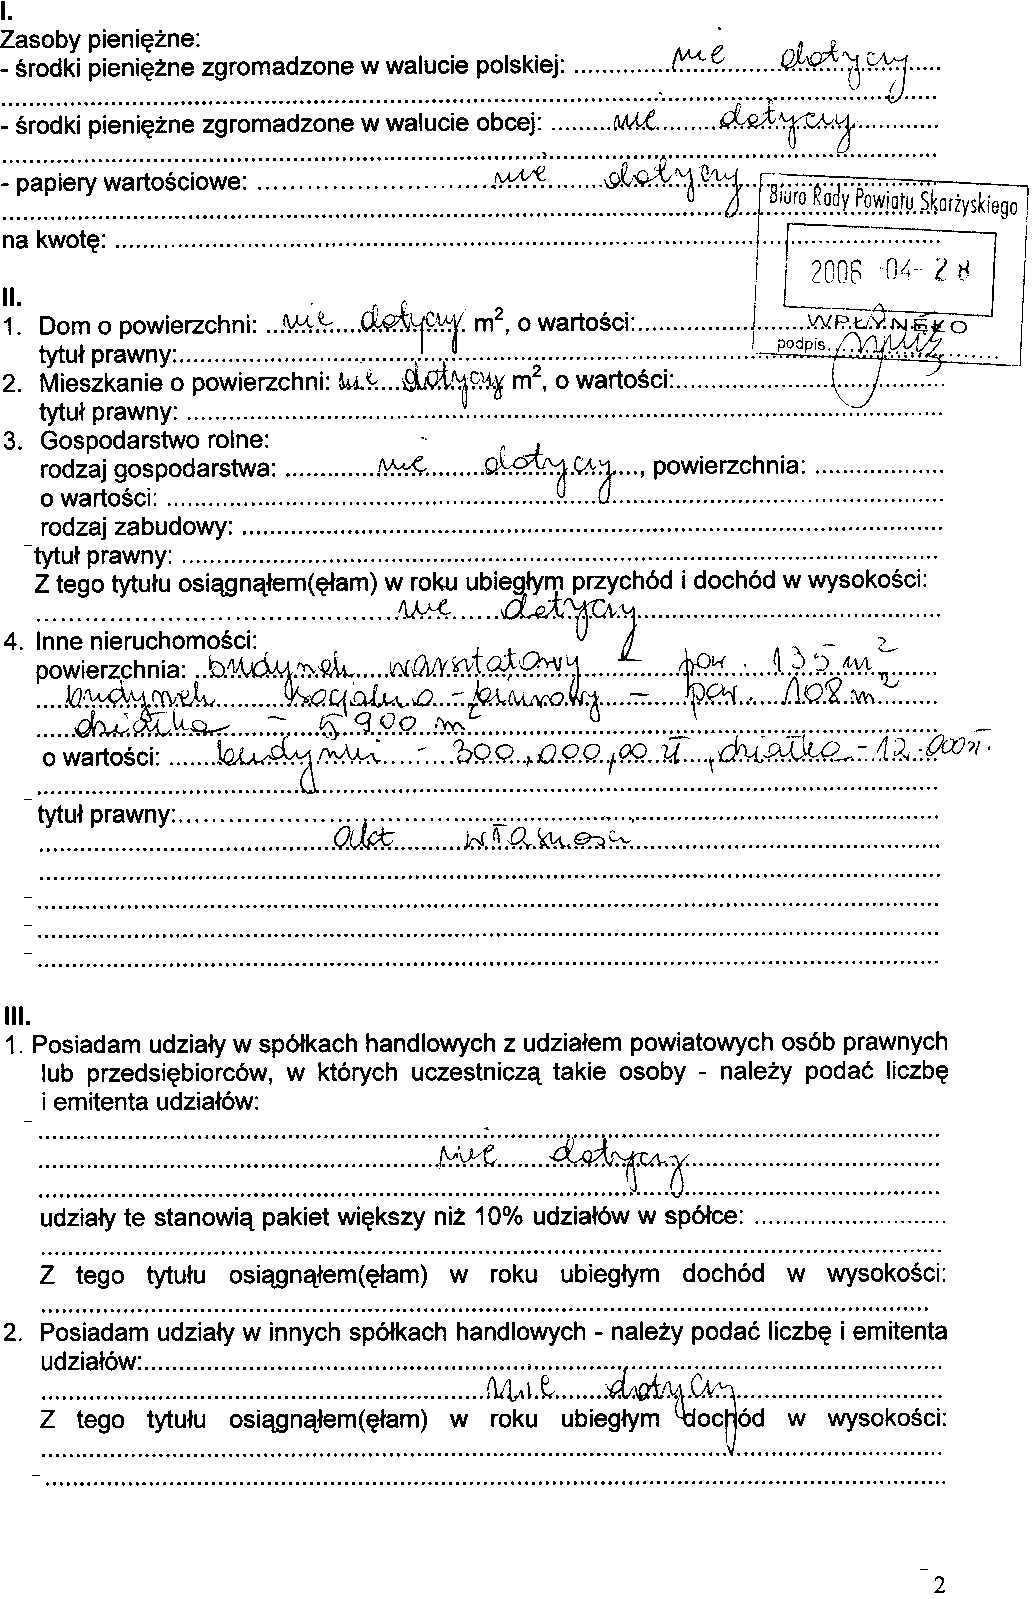 I.
Zasoby pieniężne:
- środki pieniężne zgromadzone w walucie polskiej: .............nie........dotyczy.....
- środki pieniężne zgromadzone w walucie obcej: ........nie........dotyczy............
- papiery wartościowe: ..............................nie.......dotyczy..
Biuro Rady Powiatu Skarżyskiego
na kwotę: ...........................................................
2006 -04- 28
II.
1. Dom o powierzchni: ..nie....dotyczy. m², o wartości:..................
WPŁYNĘŁO
tytuł prawny:...........................................................
podpis.
2. Mieszkanie o powierzchni: nie...dotyczy m², o wartości:.......................
tytuł prawny: ...........................................................
3. Gospodarstwo rolne:
rodzaj gospodarstwa: ............nie........dotyczy...., powierzchnia: ...................
o wartości: ...........................................................
rodzaj zabudowy: ...........................................................
tytuł prawny: ...........................................................
Z tego tytułu osiągnąłem(ęłam) w roku ubiegłym przychód i dochód w wysokości:
......................nie......dotyczy......................
4. Inne nieruchomości:
powierzchnia: ..budynek.....warsztatowy - pow. 135 m²
....budynek socjalno - biurowy - pow. 108 m²
.....działka - 5900 m²
o wartości: .......budynki - 300.000,00 zł, działka - 12.000 zł.
tytuł prawny:...........................................................
......................akt........własności......................
III.
1. Posiadam udziały w spółkach handlowych z udziałem powiatowych osób prawnych
lub przedsiębiorców, w których uczestniczą takie osoby - należy podać liczbę
i emitenta udziałów:
......................nie.......dotyczy......................
udziały te stanowią pakiet większy niż 10% udziałów w spółce: ............................
Z tego tytułu osiągnąłem(ęłam) w roku ubiegłym dochód w wysokości:
2. Posiadam udziały w innych spółkach handlowych - należy podać liczbę i emitenta
udziałów:...........................................................
......................nie.......dotyczy......................
Z tego tytułu osiągnąłem(ęłam) w roku ubiegłym dochód w wysokości:
2